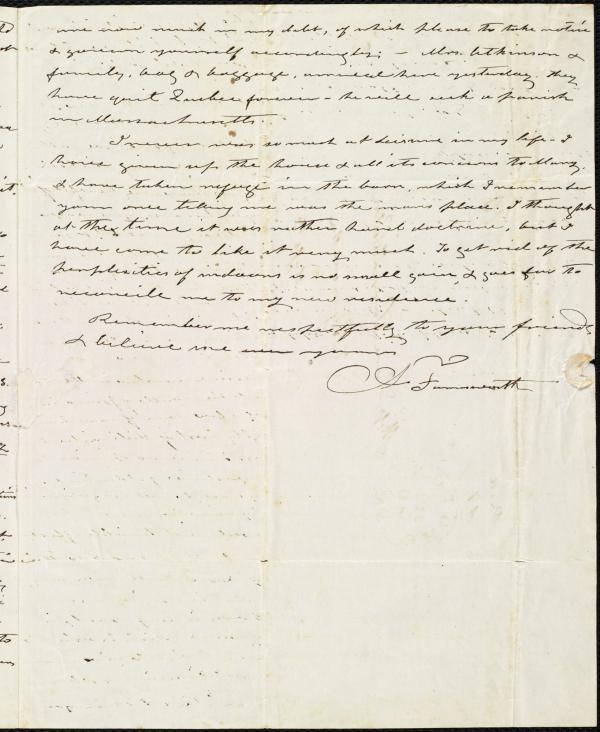 are now much in my debt, of which please to take notice
& govern yourself accordingly; – Mrs. Atkinson &
family, bag & baggage, arrived here yesterday. they
have quit Quebec forever – he will seek a parish
in Massachusetts
I never was so much at leisure in my life – I
have given up the house & all its concerns to Mary.
& have taken refuge in the barn, which I remember
your once telling me was the mans place. I thought
at the time it was rather hard doctrine, but I
have come to like it very much. To get rid of the
perplexities of indoors is no small gain, & goes far to
reconcile me to my new residence.
Remember me respectfully to your friends
& believe me ever yours
A Farnsworth